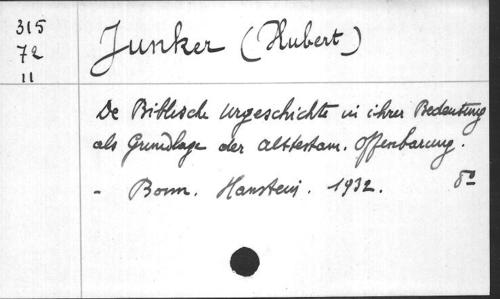 315
72
11
Junker (Hubert)
De Biblische Urgeschichte in ihrer Bedeutung
als Grundlage der alttestam. Offenbarung.
- Bonn. Hanstein. 1932. 8º